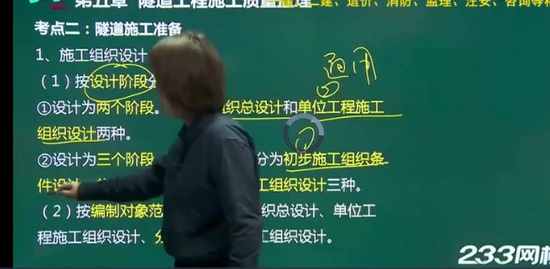 第五章 隧道工程施工质量管理
二建、造价、消防、监理、注安、咨询等
考点二:隧道施工准备
1、施工组织设计
(1)按设计阶段
①设计为两个阶段。 组织总设计和单位工程施工
组织设计两种。
②设计为三个阶段 分为初步施工组织条
件设计 工组织设计三种。
(2)按编制对象范 织总设计、单位工
程施工组织设计、 组织设计。
233网校